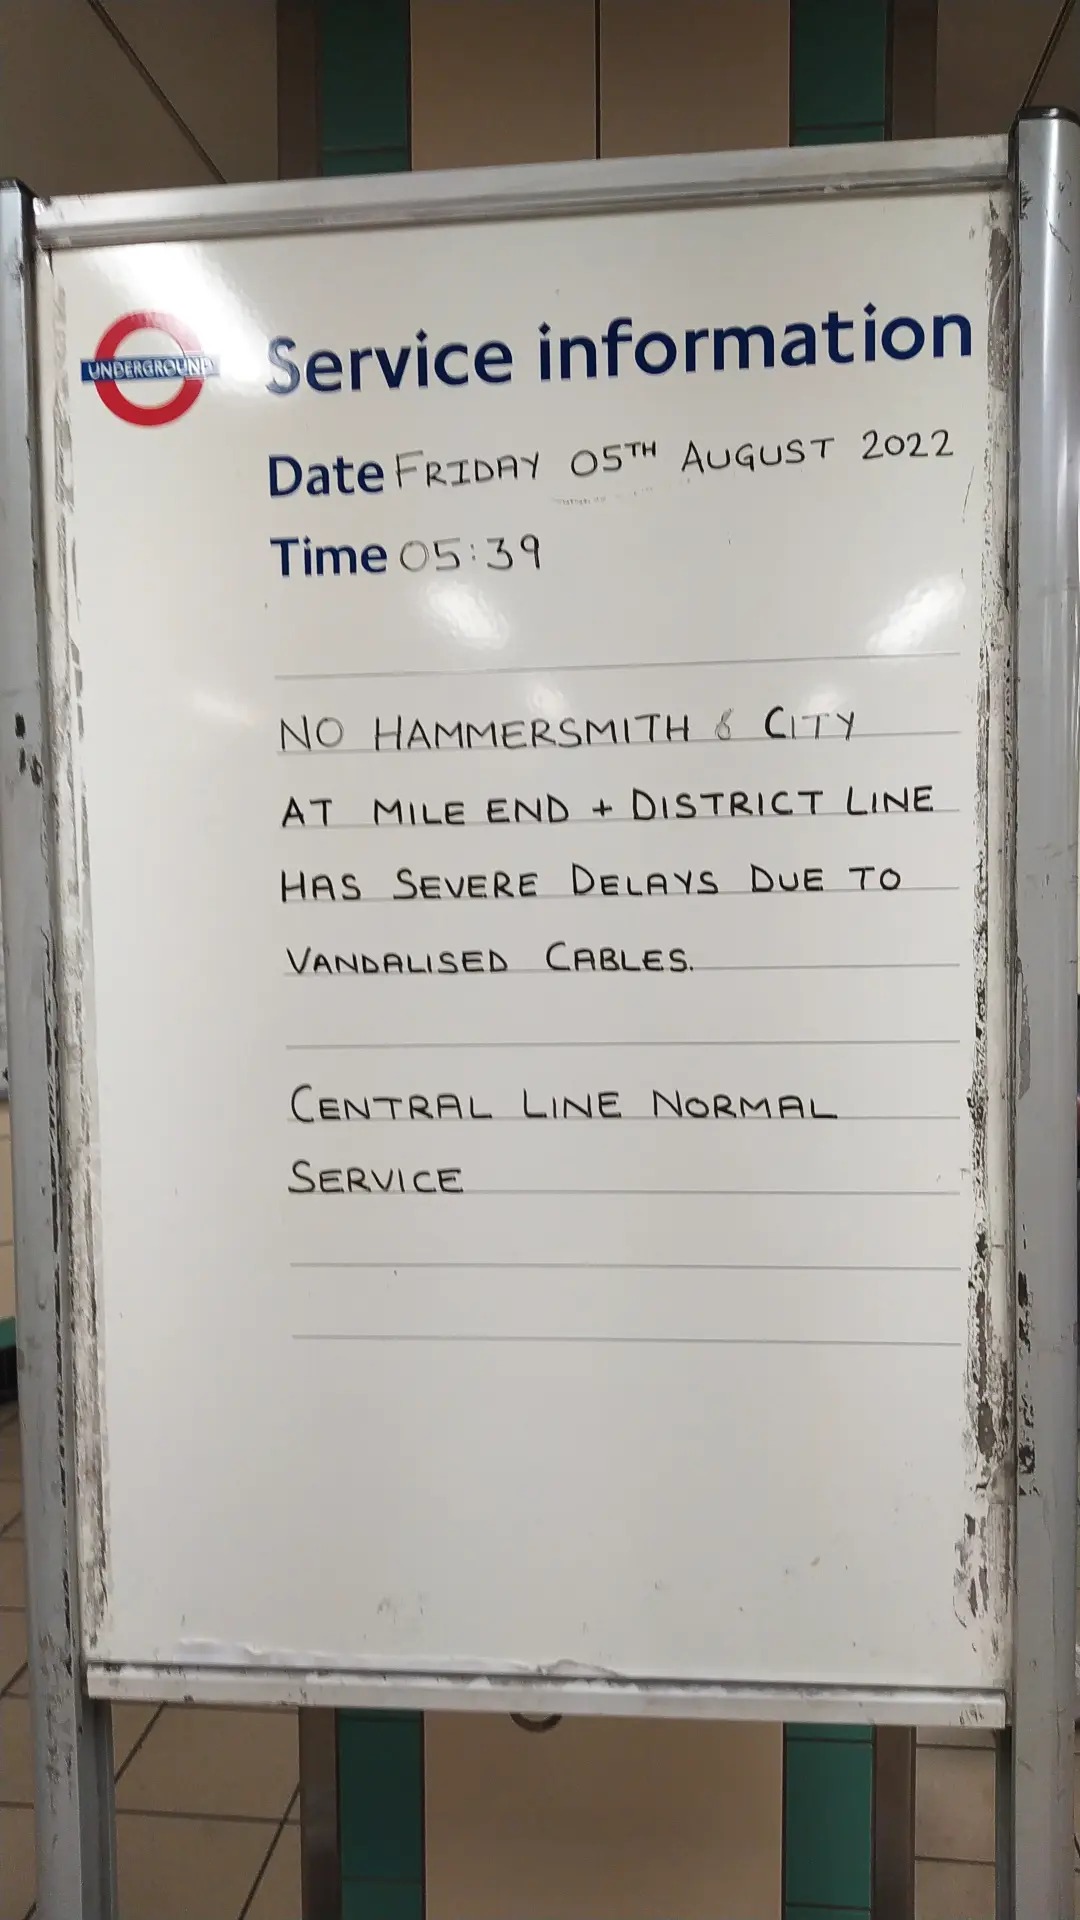 UNDERGROUND
Service information
Date FRIDAY 05TH AUGUST 2022
Time 05:39
NO HAMMERSMITH & CITY
AT MILE END + DISTRICT LINE
HAS SEVERE DELAYS DUE TO
VANDALISED CABLES.
CENTRAL LINE NORMAL
SERVICE